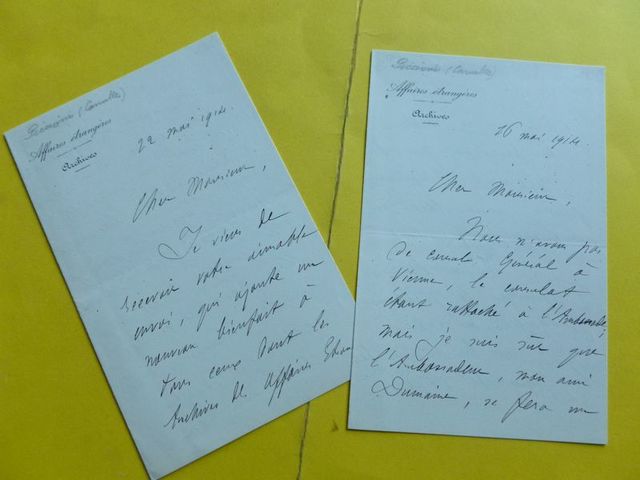 Affaires étrangères
Archives
22 mai 1914.
Cher Monsieur,
Je viens de
recevoir votre aimable
envoi, qui ajoute un
nouveau bienfait à
tous ceux dont les
Archives des Affaires Etran
Affaires étrangères
Archives
26 mai 1914.
Cher Monsieur,
Nous n'avons pas
de consul Général à
Vienne, le consulat
étant rattaché à l'Ambassade;
mais je suis sûr que
l'Ambassadeur, mon ami
Dumaine, se fera un